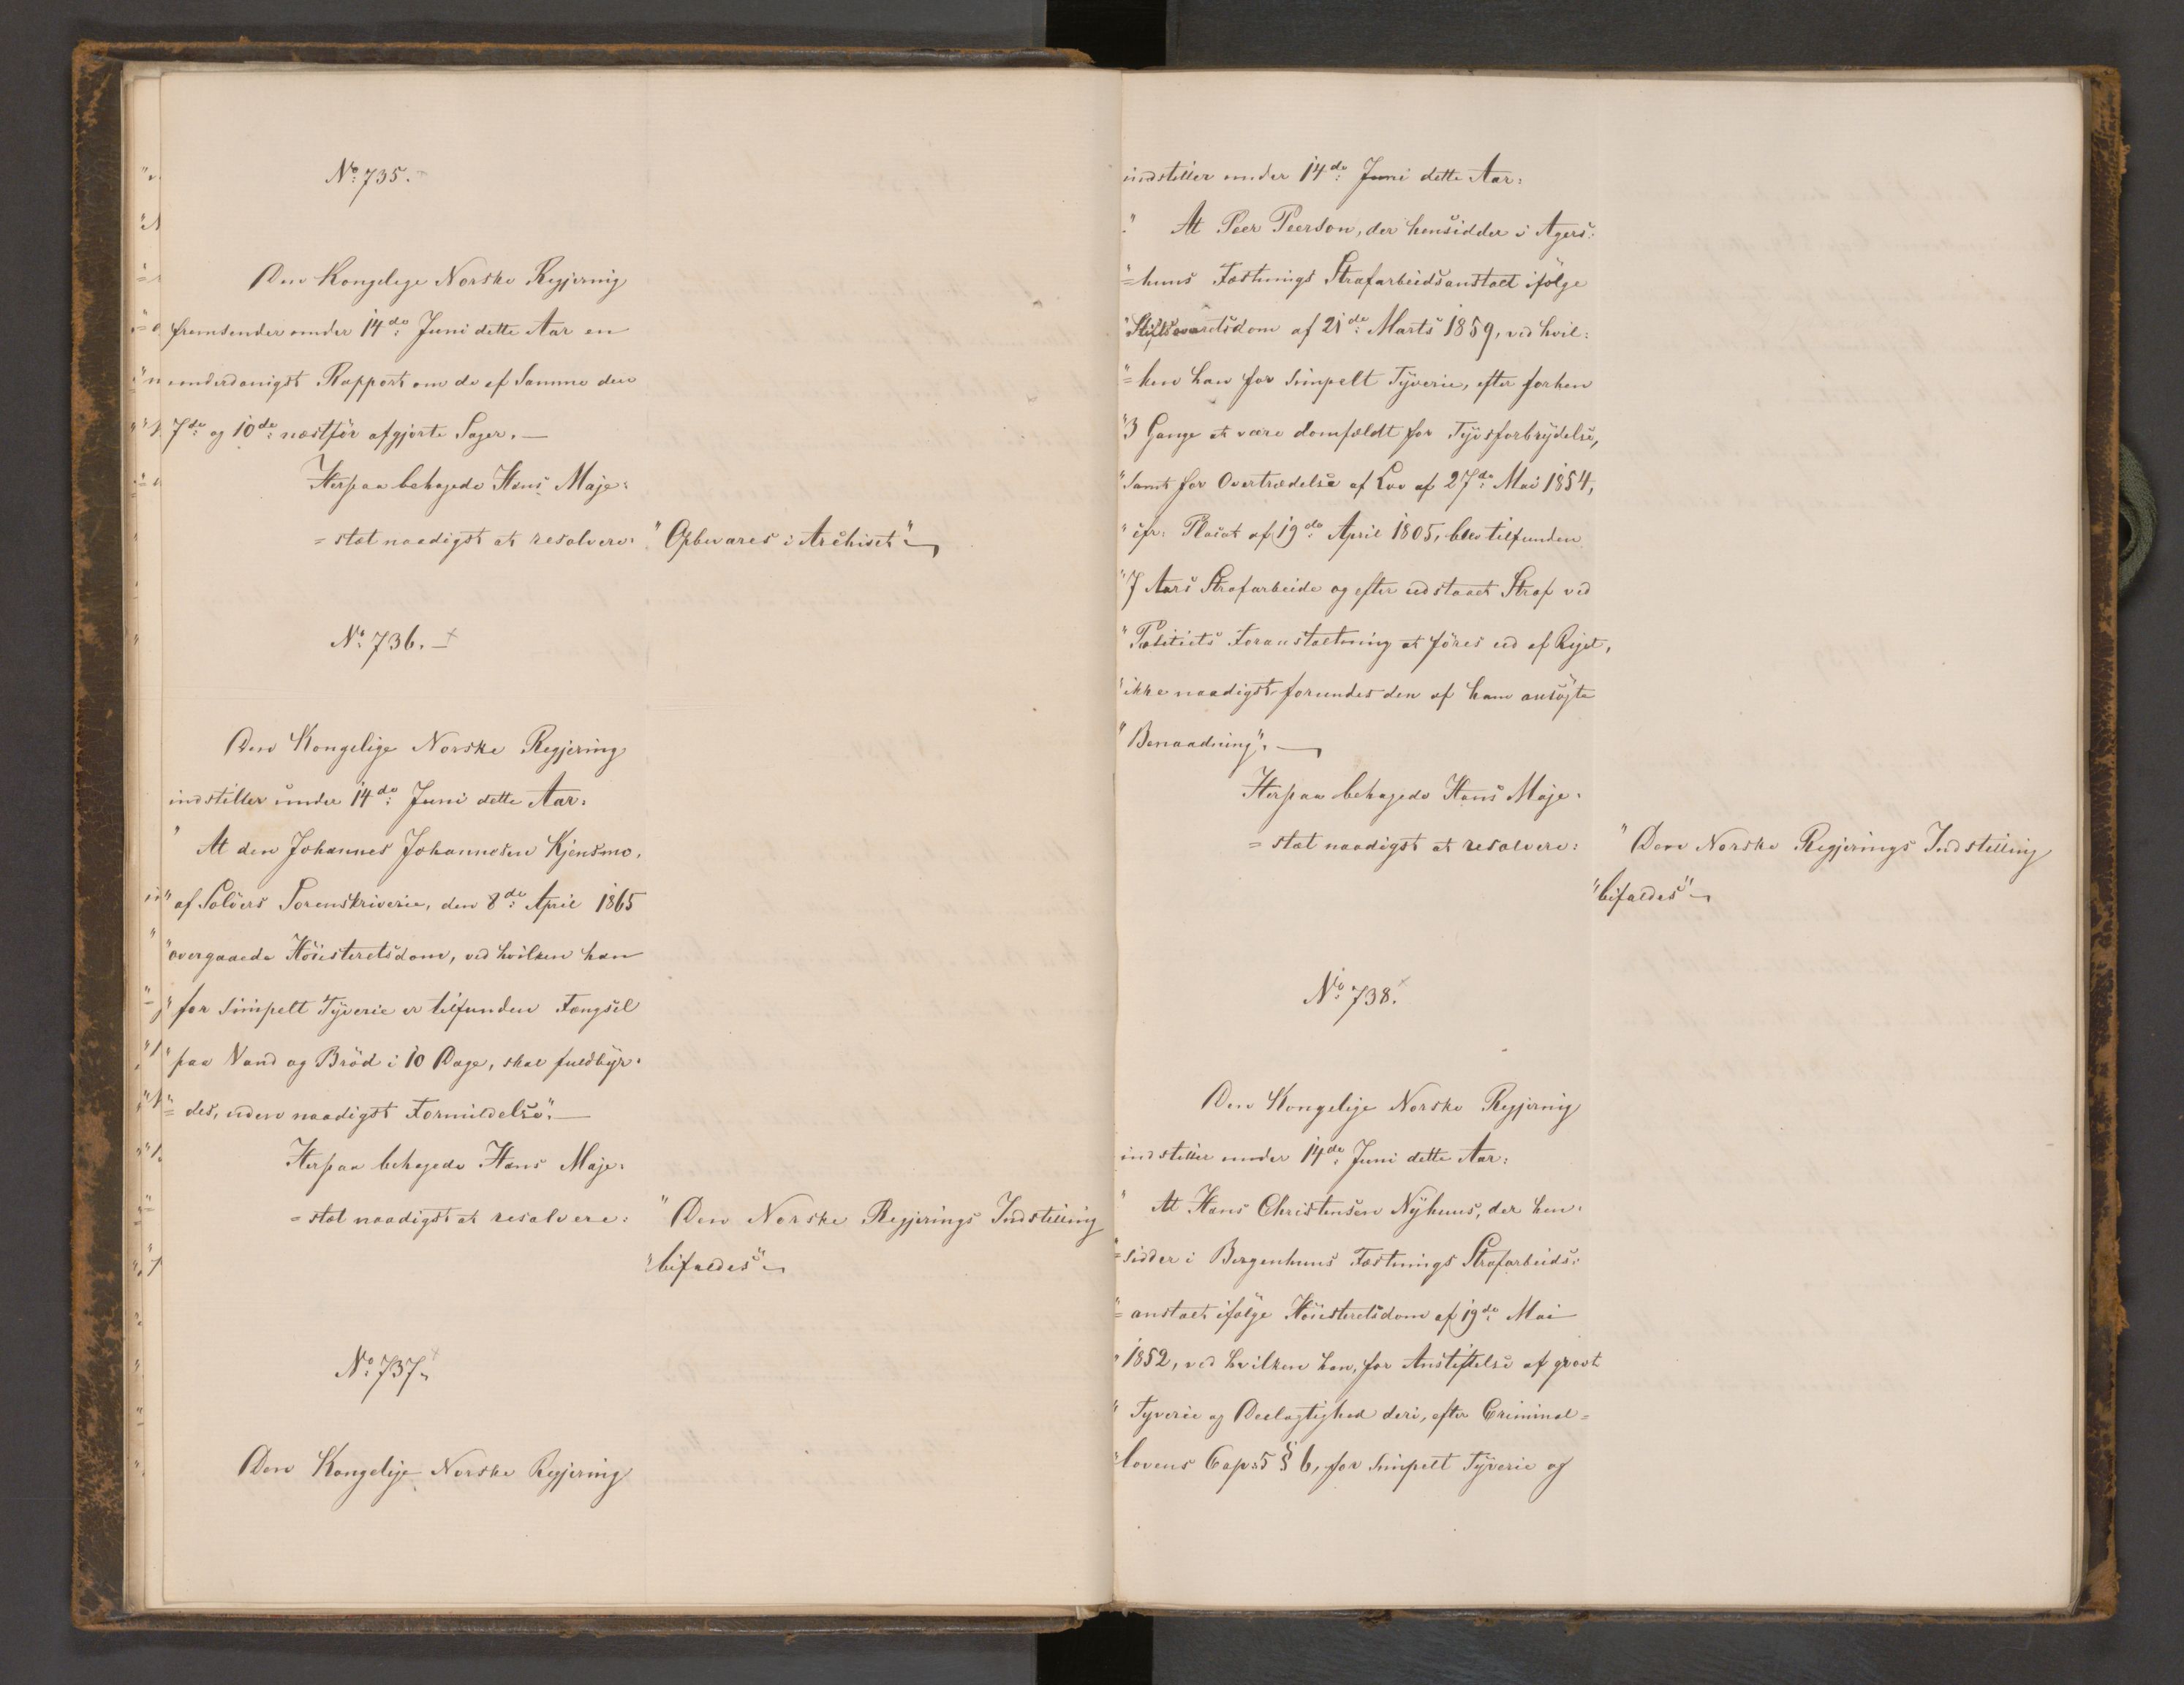 No: 735.
Den Kongelige Norske Regjering
fremsender under 14de: Juni dette Aar en
underdanigst Rapport om de af Samme den
7de: og 10de: næstför afgjorte Sager. —
Herpaa behagede Hans Maje-
= stæt naadigst at resolvere: "Opbevares i Archivet"
No: 736. —
Den Kongelige Norske Regjering
indstiller under 14de: Juni dette Aar:
" At den Johannes Johannesen Kjensmo,
" af Solöers Sorenskriverie, den 8de: April 1865
"overgaaede Höiesteretsdom, ved hvilken han
" for simpelt Tyverie er tilfunden Fængsel
" paa Vand og Bröd i 10 Dage, skal fuldbyr-
"= des, uden naadigst Formildelse". —
Herpaa behagede Hans Maje-
= stæt naadigst at resolvere: " Den Norske Regjerings Indstilling
"bifaldes"
No: 737.
Den Kongelige Norske Regjering
indstiller under 14de: Juni dette Aar:
" At Peer Peerson, der hensidder i Agers-
"= huus Fæstnings Strafarbeidsanstalt ifölge
"Stiftsoveretsdom af 21de: Marts 1859, ved hvil-
"= ken han for simpelt Tyverie, efter forhen
"3 Gange at være domfældt for Tyvsforbrydelse,
"samt for Overtrædelse af Lov af 27de: Mai 1854,
" cfr: Placat af 19de: April 1805, blev tilfunden
"7 Aars Strafarbeide og efter udstaaet Straf ved
"Politiets Foranstaltning at föres ud af Riget,
"ikke naadigst forundes den af ham ansögte
"Benaadning". —
Herpaa behagede Hans Maje-
= stæt naadigst at resolvere: " Den Norske Regjerings Indstilling
"bifaldes"
No: 738.
Den Kongelige Norske Regjering
indstiller under 14de: Juni dette Aar:
" At Hans Christensen Nyhuus, der hen-
"= sidder i Bergenhuus Fæstnings Strafarbeids-
"= anstalt ifölge Höiesteretsdom af 19de: Mai
" 1852, ved hvilken han, for Anstiftelse af grovt
" Tyverie og Deelagtighed deri, efter Criminal=
"lovens Cap: 5 § 6, for simpelt Tyverie og